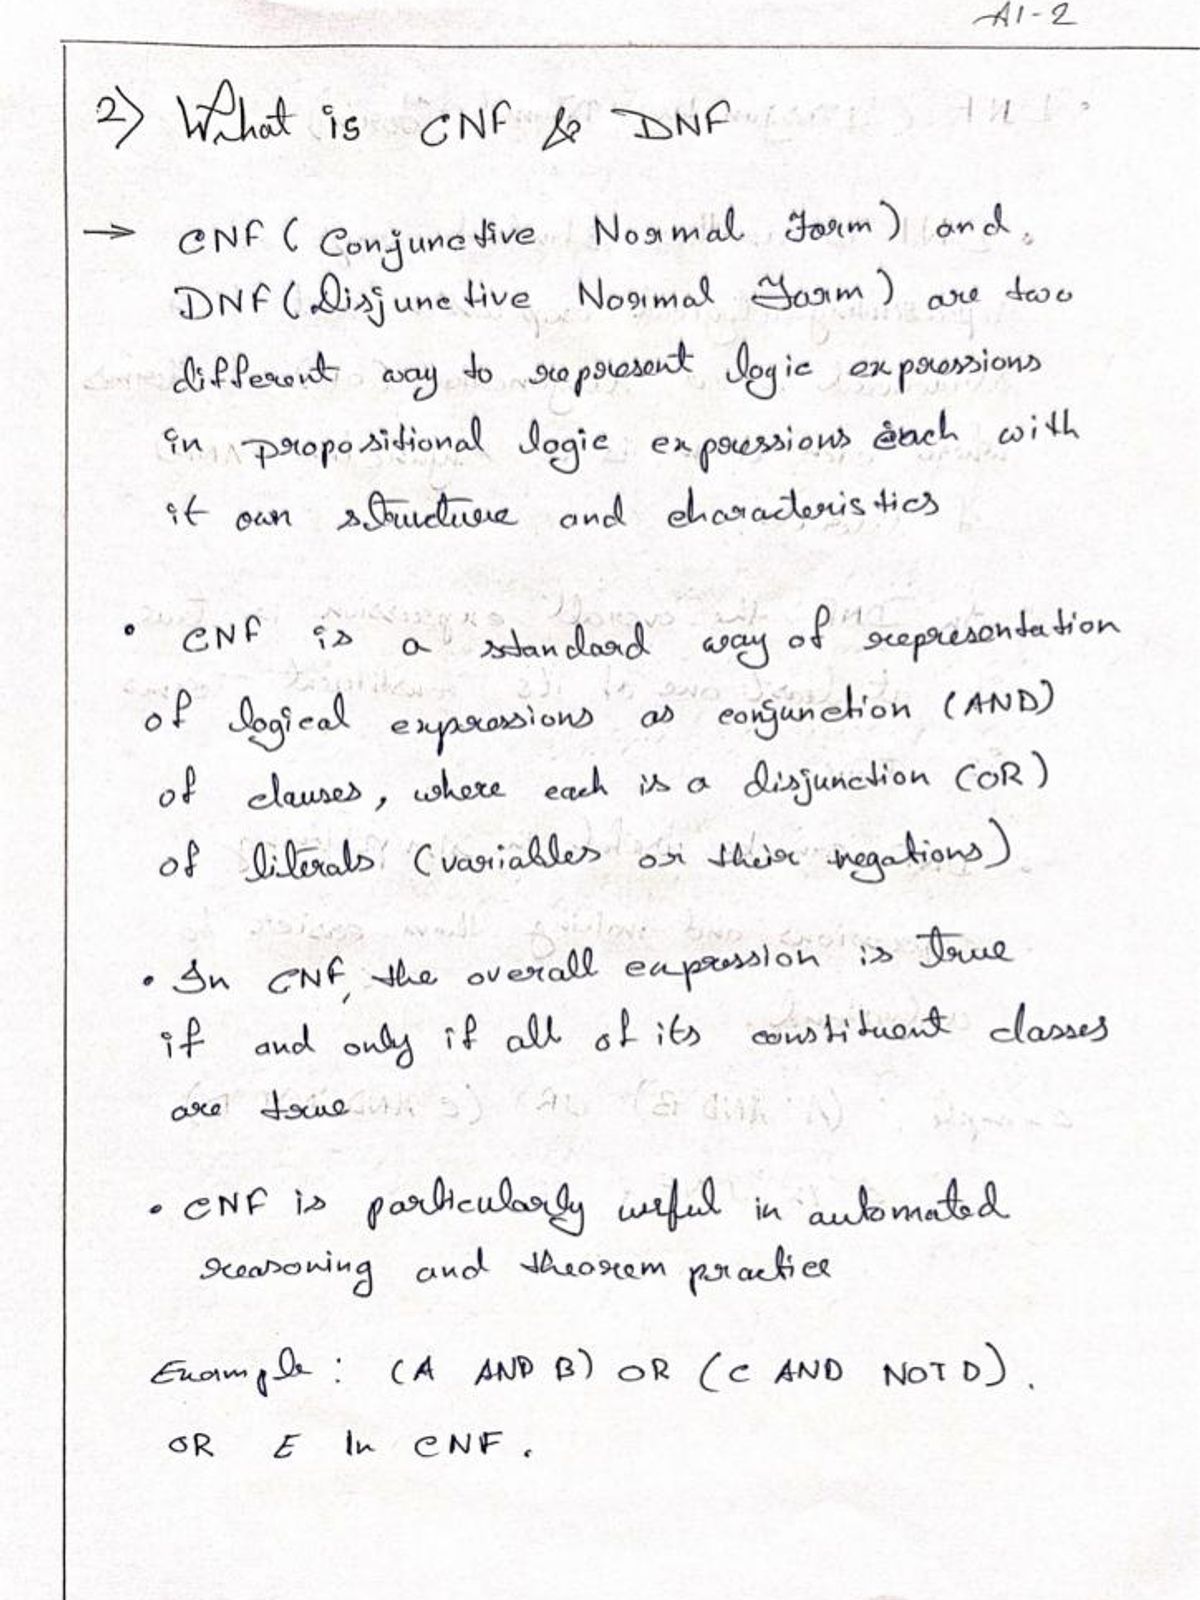 AI-2
2) What is CNF & DNF
→ CNF (Conjunctive Normal Form) and
DNF (Disjunctive Normal Form) are two
different way to represent logic expressions
in propositional logic expressions each with
it own structure and characteristics
• CNF is a standard way of representation
of logical expressions as conjunction (AND)
of clauses, where each is a disjunction (OR)
of literals (variables or their negations)
• In CNF, the overall expression is true
if and only if all of its constituent classes
are true
• CNF is particularly useful in automated
reasoning and theorem practice
Example : (A AND B) OR (C AND NOT D).
OR E In CNF.